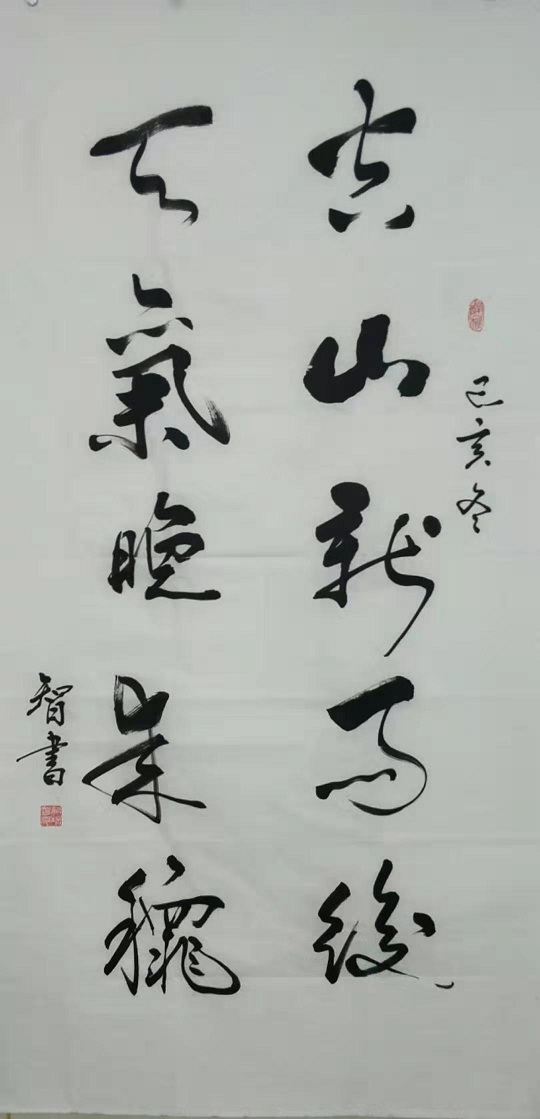 己亥冬
空山新雨後
天氣晚來龝
智書